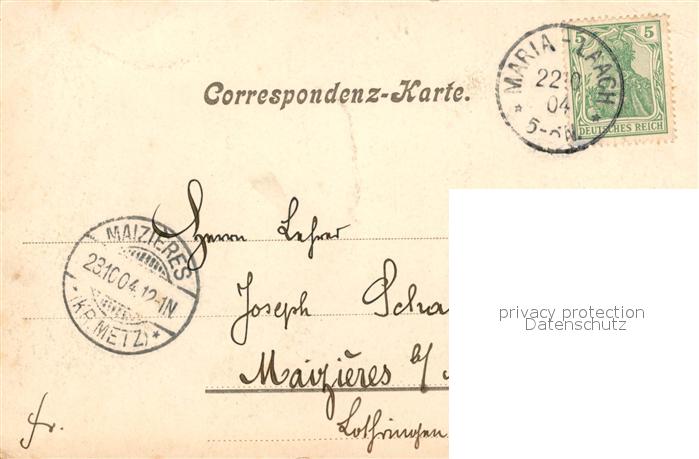 MARIA-LAACH
5 5
22.
04
5-6N.
DEUTSCHES REICH
Correspondenz-Karte.
MAIZIERES
23.10.04.12-1N
*(KR. METZ)*
Herrn Lehrer
Joseph Scha
Maizières b/
Lothringen
fr.
privacy protection
Datenschutz